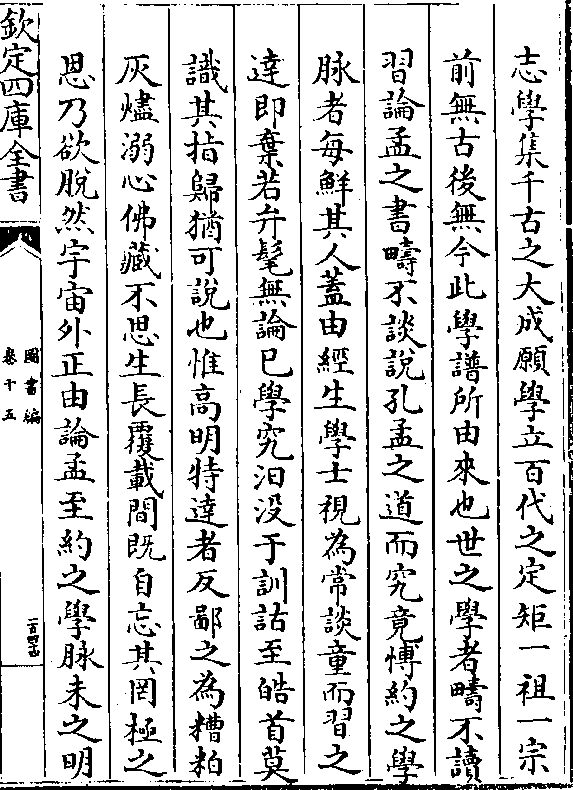 志學集千古之大成願學立百代之定矩一祖一宗
前無古後無今此學譜所由來也世之學者疇不讀
習論孟之書疇不談說孔孟之道而究竟博約之學
脉者每鮮其人蓋由經生學士視為常談童而習之
達即棄若弁髦無論已學究汨没于訓詁至皓首莫
識其指歸猶可說也惟高明特達者反鄙之為糟粕
灰燼溺心佛藏不思生長覆載間既自忘其罔極之
恩乃欲脫然宇宙外正由論孟至約之學脉未之明
欽定四庫全書
圖書編
卷十五